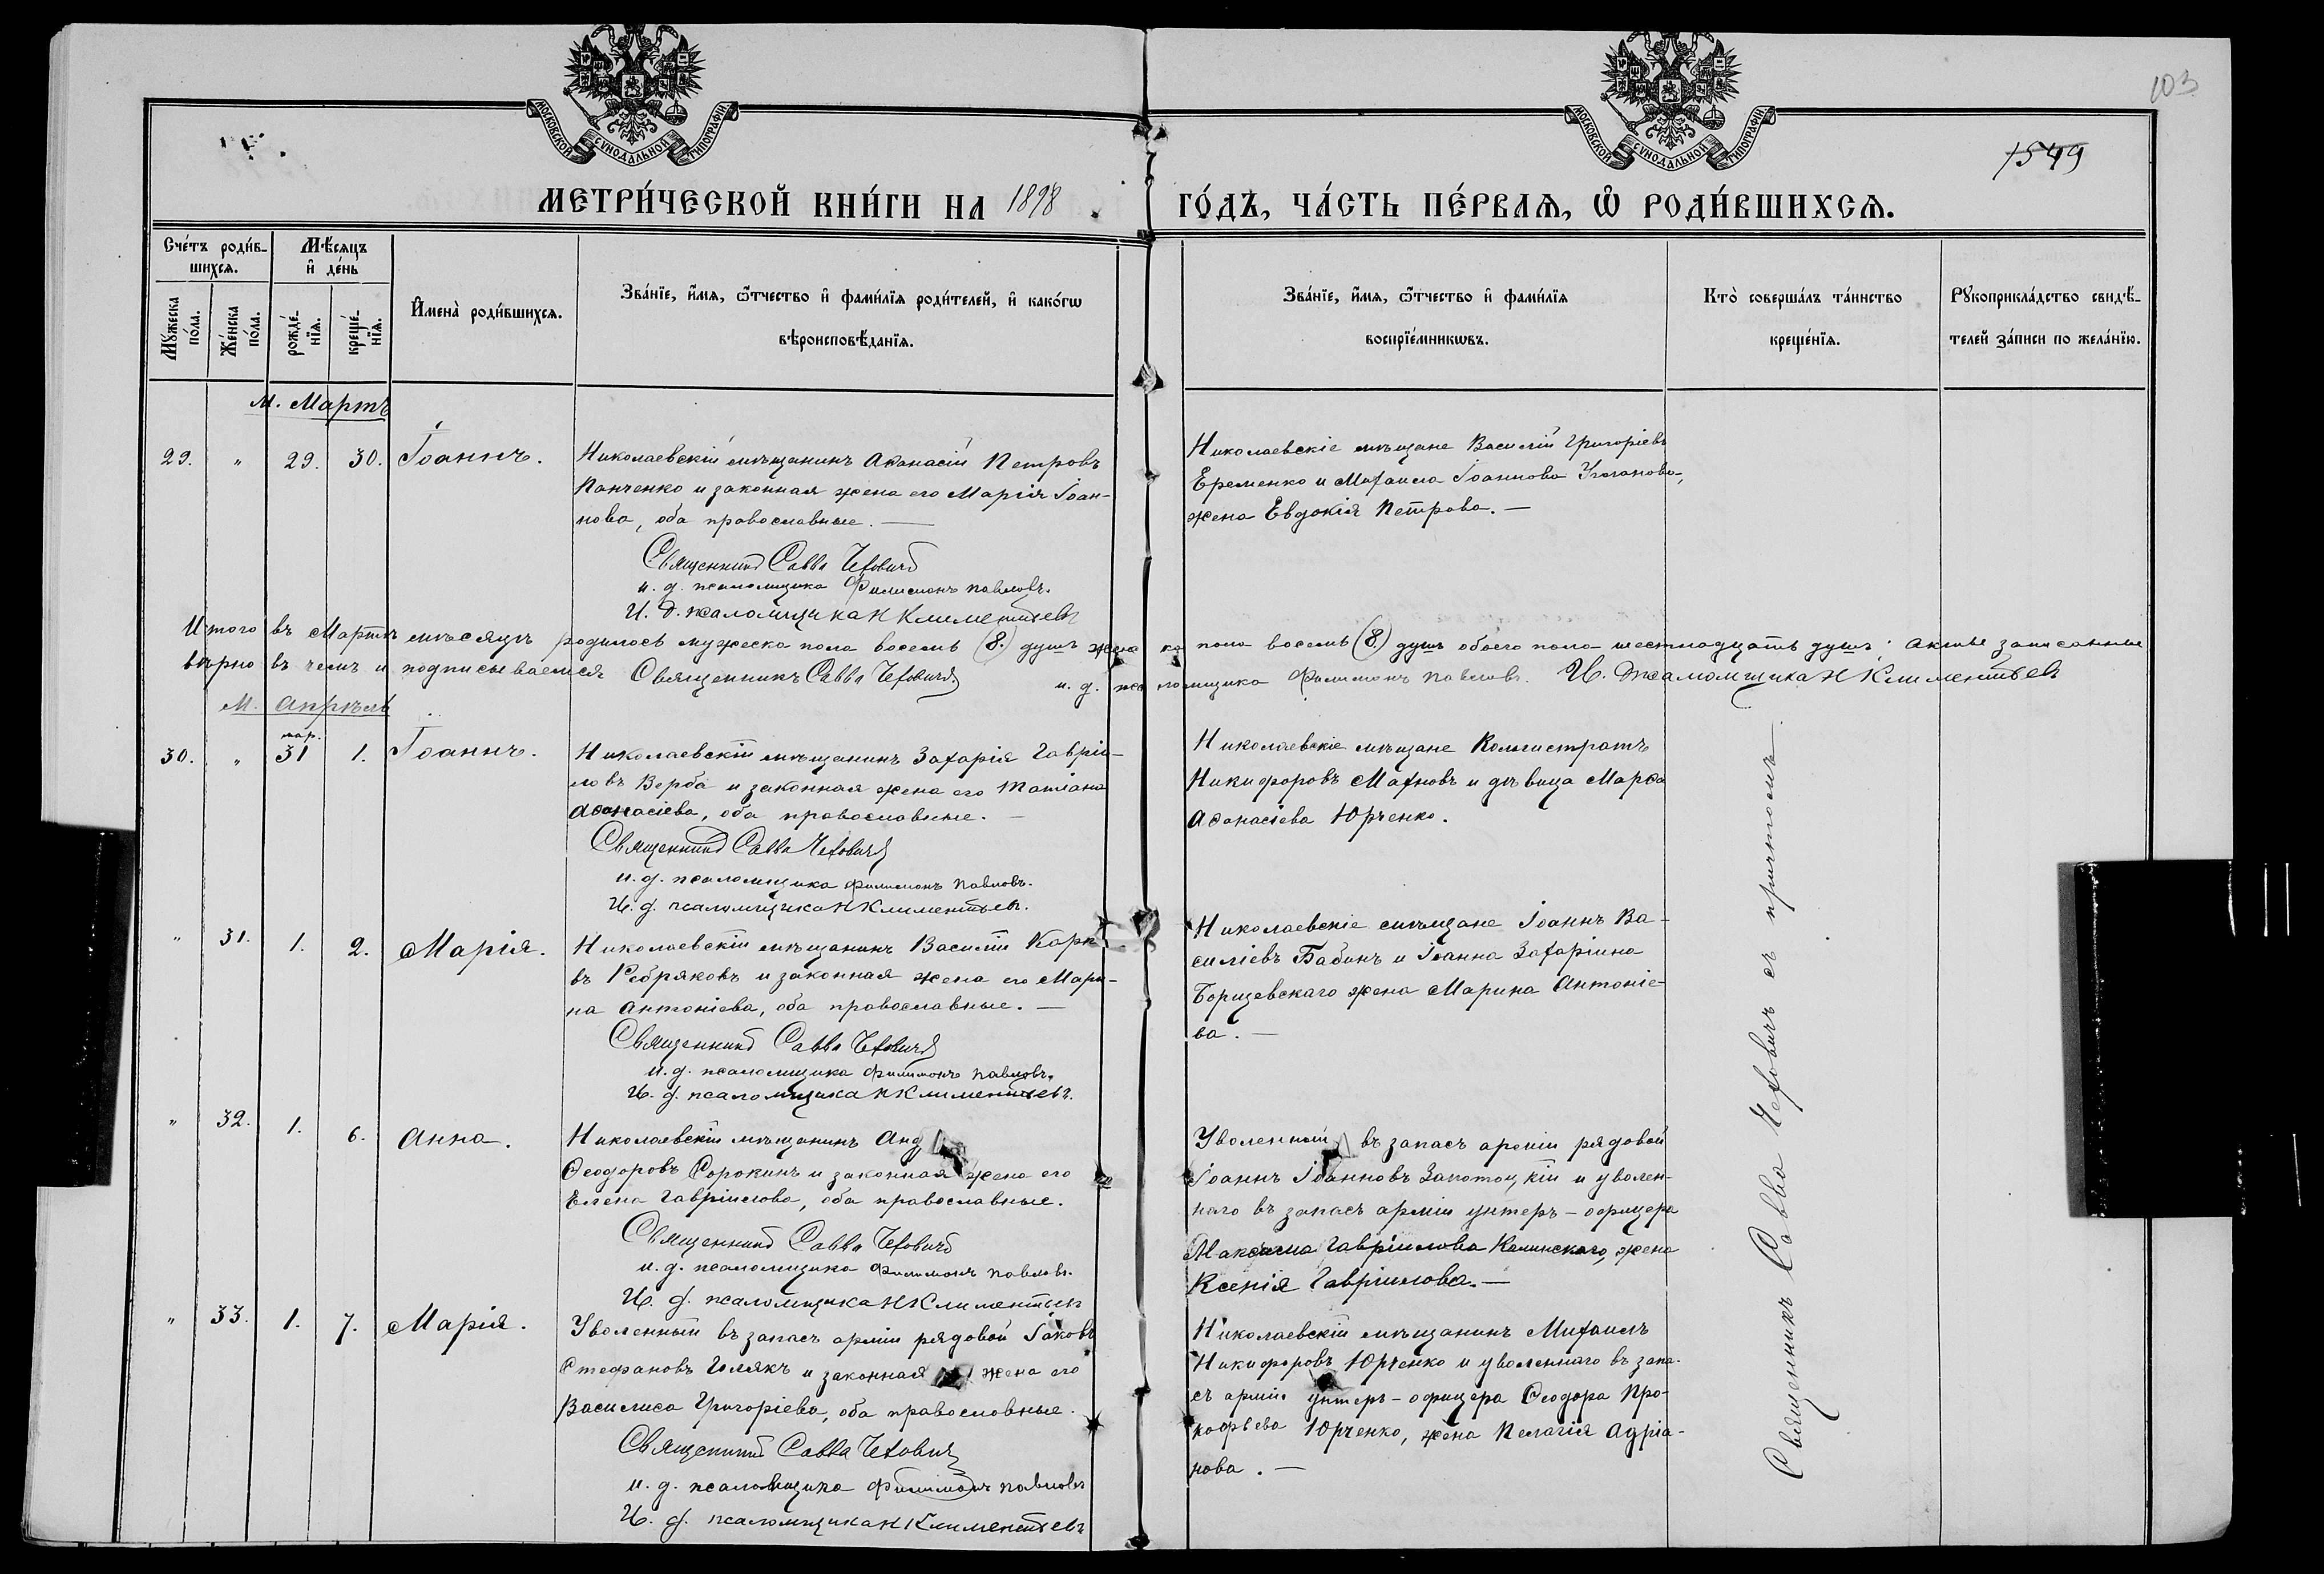 103
1549
МОСКОВСКОЙ СѴНОДАЛЬНОЙ ТИПОГРАФІИ.
МОСКОВСКОЙ СѴНОДАЛЬНОЙ ТИПОГРАФІИ.
МЕТРИ́ЧЕСКОЙ КНИ́ГИ НА 1898 ГО́ДЪ, ЧА́СТЬ ПЕ́РВАѦ, Ѽ РОДИ́ВШИХСѦ.
Сче́тъ роди́в-
шихсѧ.
Мꙋ́жеска
по́ла.
Же́нска
по́ла.
Мѣ́сѧцъ
и҆ де́нь
рожде́-
нїѧ.
креще́-
нїѧ.
И҆мена̀ роди́вшихсѧ.
Зва́нїе, и҆́мѧ, ѻ҆́тчество и҆ фами́лїѧ роди́телей, и҆ како́гѡ
вѣроисповѣ́данїѧ.
Зва́нїе, и҆́мѧ, ѻ҆́тчество и҆ фами́лїѧ
воспрїе́мникѡвъ.
Кто̀ соверша́лъ та́инство
креще́нїѧ.
Рꙋкоприкла́дство свидѣ́-
телей за́писи по жела́нїю.
М. Мартъ
29. " 29. 30. Іоаннъ.
Николаевскій мѣщанинъ Аѳанасій Петровъ
Панченко и законная жена его Марія Іоан-
нова, оба православные. —
Священникъ Савва Чеховичъ
и. д. псаломщика Филимонъ Павловъ.
И. д. псаломщика Н Климентьевъ
Николаевскіе мѣщане Василій Григоріевъ
Еременко и Михаила Іоаннова
жена Евдокія Петрова. —
Итого въ Мартѣ мѣсяцѣ родилось мужеска пола восемь (8.) душъ женска пола восемь (8.) душъ обоего пола шестнадцать душъ; записанные
вѣрно въ чемъ и подписываемся Священникъ Савва Чеховичъ и. д. псаломщика Филимонъ Павловъ. И. д. псаломщика Н Климентьевъ
М. Апрѣль
30. " мар. 31 1. Іоаннъ.
Николаевскій мѣщанинъ Захарія Гавріи-
ловъ Верба и законная жена его Татіана
Аѳанасіева, оба православные. —
Священникъ Савва Чеховичъ
и. д. псаломщика Филимонъ Павловъ.
И. д. псаломщика Н Климентьевъ.
Николаевскіе мѣщане Каллистратъ
Никифоровъ Махновъ и дѣвица Марѳа
Аѳанасіева Юрченко.
" 31. 1. 2. Марія.
Николаевскій мѣщанинъ Василій Карпо
въ Ребряковъ и законная жена его Мари-
на Антоніева, оба православные. —
Священникъ Савва Чеховичъ
и. д. псаломщика Филимонъ Павловъ.
И. д. псаломщика Н Климентьевъ.
Николаевскіе мѣщане Іоаннъ Ва-
силіевъ Бабинъ и Іоанна Захаріина
Борщевскаго жена Марина Антоніе-
ва. —
" 32. 1. 6. Анна.
Николаевскій мѣщанинъ Анд
Ѳеодоровъ Сорокинъ и законная жена его
Елена Гавріилова, оба православные.
Священникъ Савва Чеховичъ
и. д. псаломщика Филимонъ Павловъ.
И. д. псаломщика Н Климентьевъ
Уволенный въ запасъ арміи рядовой
Іоаннъ Іоанновъ Запотоцкій и уволен-
наго въ запасъ арміи унтеръ-офицера
Максима Гавріилова Калинскаго, жена
Ксенія Гавріилова. —
" 33. 1. 7. Марія.
Уволенный въ запасъ арміи рядовой Іаковъ
Стефановъ Гилякъ и законная жена его
Василиса Григоріева, оба православные.
Священникъ Савва Чеховичъ
и. д. псаломщика Филимонъ Павловъ
И. д. псаломщика Н Климентьевъ
Николаевскій мѣщанинъ Михаилъ
Никифоровъ Юрченко и уволеннаго въ запа-
съ арміи унтеръ-офицера Ѳеодора Про-
кофьева Юрченко, жена Пелагія Адріа-
нова. —
Священникъ Савва Чеховичъ съ причтомъ